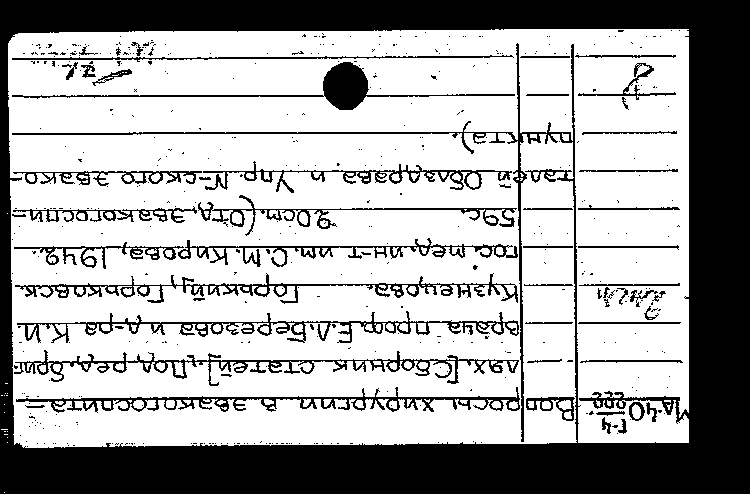 Мд.40 Г-4/222 Вопросы хирургии в эвакогоспита-
лях. [Сборник статей]. Под ред. бриг.
врача проф. Е.Л. Березова и д-ра К.И.
Кузнецова. Горький, Горьковск.
гос. мед. ин-т им. С.М. Кирова, 1942.
59с. 20см. (Отд. эвакогоспи-
талей Облздрава и Упр. N-ского эвако-
пункта).